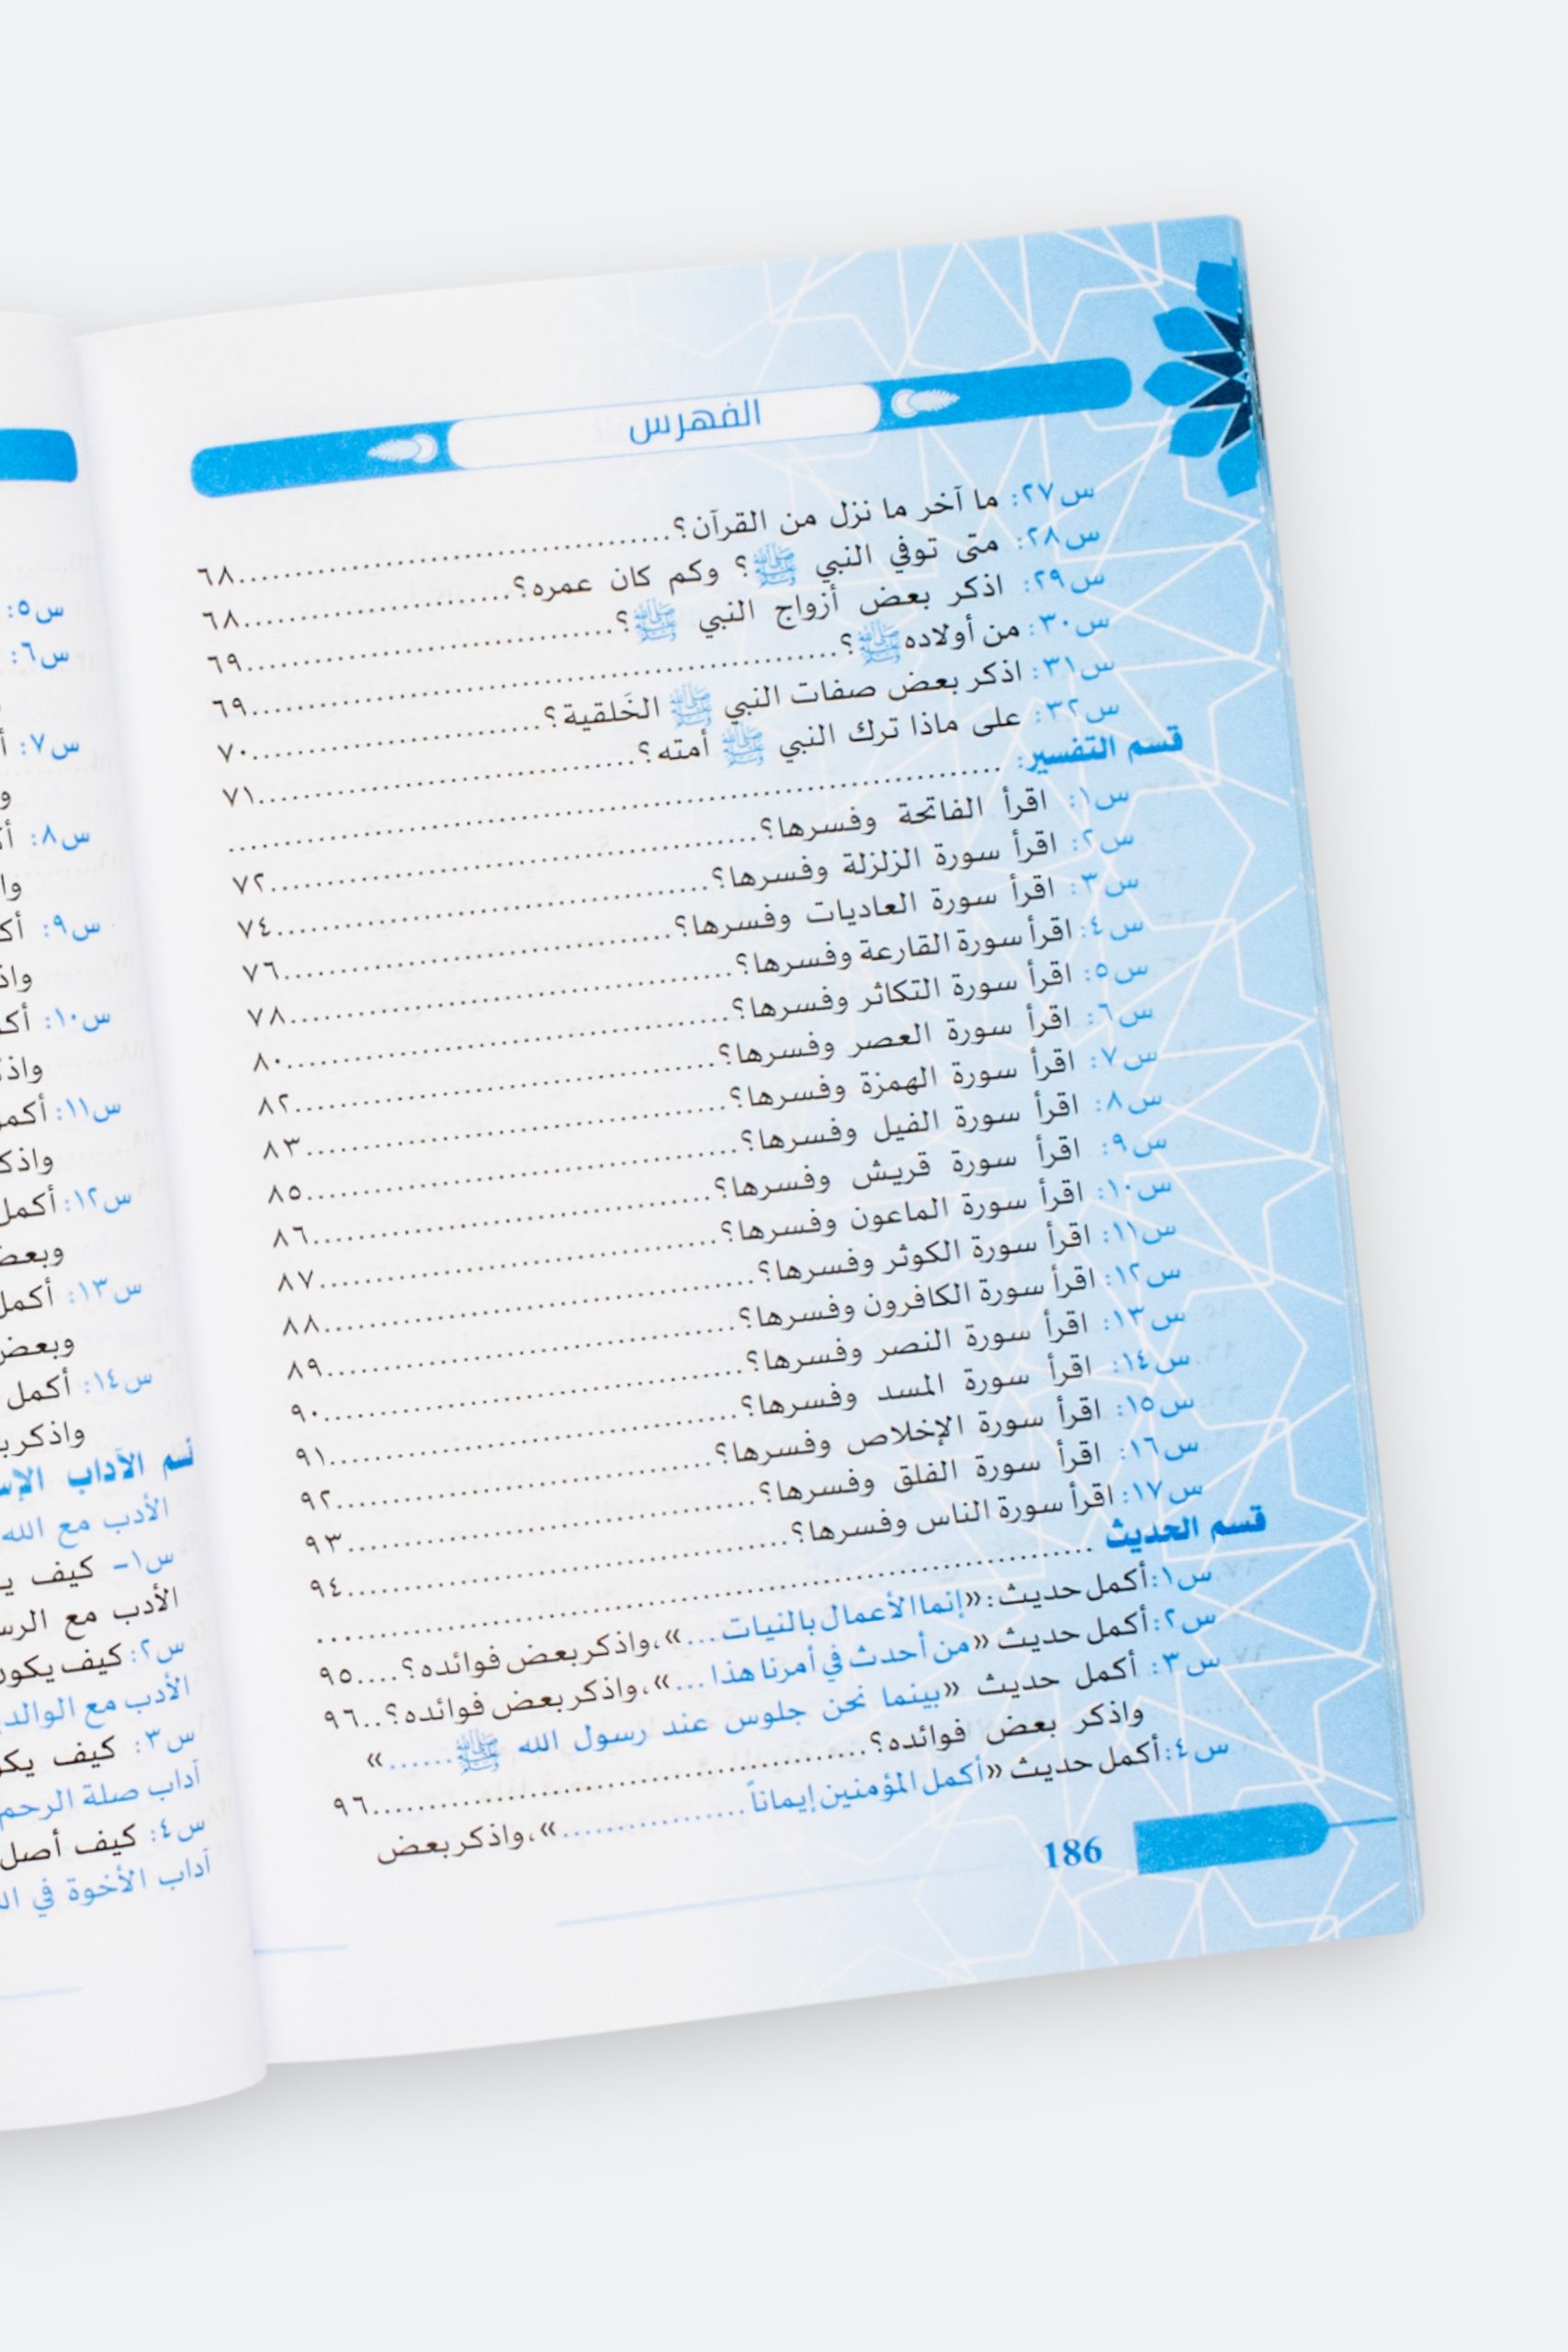 الفهرس
س٢٧: ما آخر ما نزل من القرآن؟........................................٦٨
س٢٨: متى توفي النبي ﷺ؟ وكم كان عمره؟........................٦٨
س٢٩: اذكر بعض أزواج النبي ﷺ؟..................................٦٩
س٣٠: من أولاده ﷺ؟......................................................٦٩
س٣١: اذكر بعض صفات النبي ﷺ الخَلقية؟..........................٧٠
س٣٢: على ماذا ترك النبي ﷺ أمته؟..................................٧١
قسم التفسير: ......................................................................
س١: اقرأ الفاتحة وفسرها؟............................................٧٢
س٢: اقرأ سورة الزلزلة وفسرها؟.......................................٧٤
س٣: اقرأ سورة العاديات وفسرها؟...................................٧٦
س٤: اقرأ سورة القارعة وفسرها؟........................................٧٨
س٥: اقرأ سورة التكاثر وفسرها؟........................................٨٠
س٦: اقرأ سورة العصر وفسرها؟......................................٨٢
س٧: اقرأ سورة الهمزة وفسرها؟......................................٨٣
س٨: اقرأ سورة الفيل وفسرها؟.......................................٨٥
س٩: اقرأ سورة قريش وفسرها؟....................................٨٦
س١٠: اقرأ سورة الماعون وفسرها؟....................................٨٧
س١١: اقرأ سورة الكوثر وفسرها؟.......................................٨٨
س١٢: اقرأ سورة الكافرون وفسرها؟.....................................٨٩
س١٣: اقرأ سورة النصر وفسرها؟......................................٩٠
س١٤: اقرأ سورة المسد وفسرها؟.....................................٩١
س١٥: اقرأ سورة الإخلاص وفسرها؟..................................٩٢
س١٦: اقرأ سورة الفلق وفسرها؟.....................................٩٣
س١٧: اقرأ سورة الناس وفسرها؟........................................٩٤
قسم الحديث ......................................................................
س١: أكمل حديث: «إنما الأعمال بالنيات ...»، واذكر بعض فوائده؟....٩٥
س٢: أكمل حديث «من أحدث في أمرنا هذا ...»، واذكر بعض فوائده؟..٩٦
س٣: أكمل حديث «بينما نحن جلوس عند رسول الله ﷺ......»
واذكر بعض فوائده؟.............................................٩٦
س٤: أكمل حديث «أكمل المؤمنين إيماناً.................»، واذكر بعض
186
س٥:
س٦:
س٧:
س٨:
س٩:
س١٠:
س١١:
واذكر
س١٢: أكمل
وبعض
س١٣: أكمل
وبعض
س١٤: أكمل
الآداب
الأدب مع الله
س١- كيف
الأدب مع
س٢: كيف يكون
الأدب مع
س٣: كيف
آداب صلة الرحم
س٤: كيف أصل
آداب الأخوة في